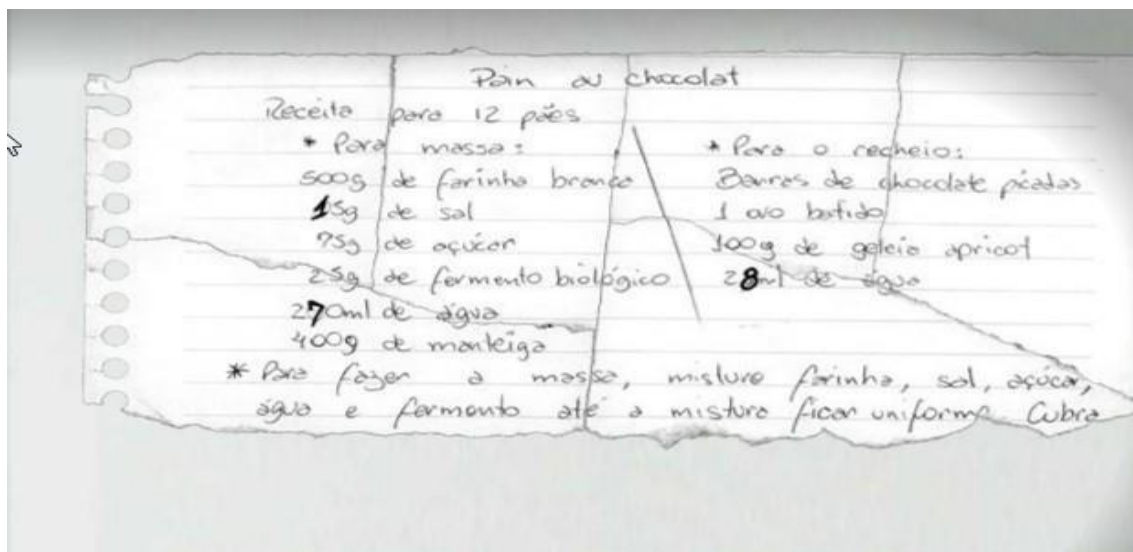 Pain au chocolat
Receita para 12 pães
* Para massa:
500g de farinha branca
15g de sal
75g de açúcar
25g de fermento biológico
270ml de água
400g de manteiga
* Para o recheio:
Barras de chocolate picadas
1 ovo batido
100g de geleia apricot
28ml de água
* Para fazer a massa, misture farinha, sal, açúcar,
água e fermento até a mistura ficar uniforme Cubra